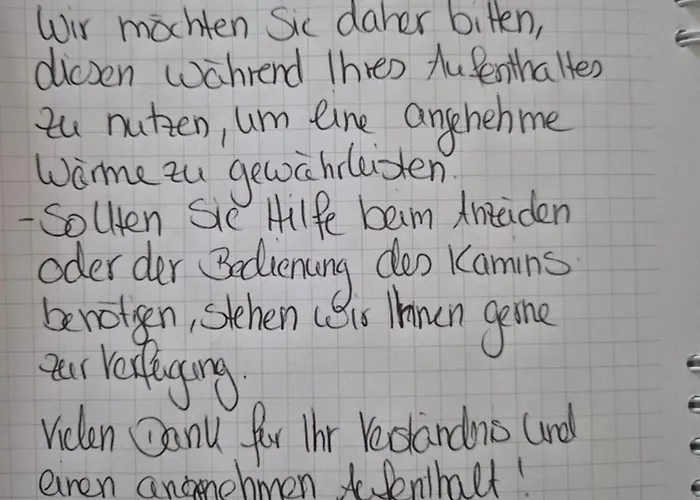 Wir möchten Sie daher bitten,
diesen während Ihres Aufenthaltes
zu nutzen, um eine angenehme
Wärme zu gewährleisten.
- Sollten Sie Hilfe beim Anzünden
oder der Bedienung des Kamins
benötigen, stehen wir Ihnen gerne
zur Verfügung.
Vielen Dank für Ihr Verständnis und
einen angenehmen Aufenthalt!